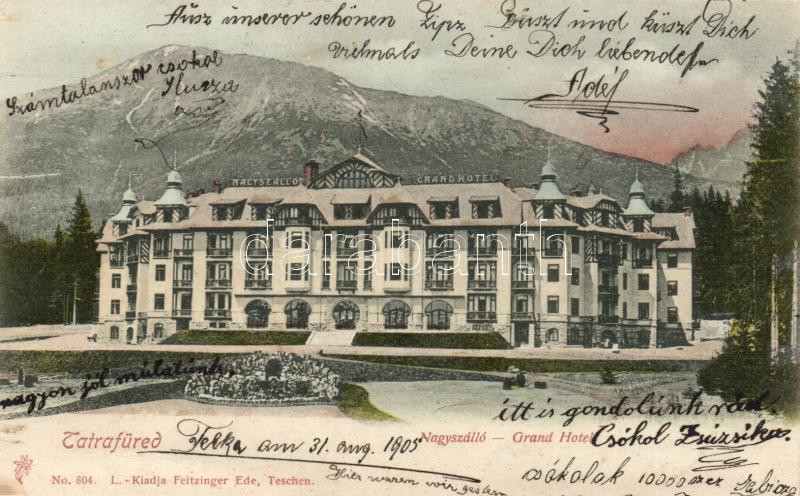 Aus unserer schönen Zipz küszt und küszt Dich
vielmals Deine Dich liebende
Adél
Számtalanszor csokol
Ilucza
NAGYSZÁLLÓ GRAND HOTEL
darabanth
nagyon jól mutatunk,
itt is gondolunk rád.
Csókol Zsuzsika.
Tatrafüred
Telka am 31. aug. 1905
Nagyszálló — Grand Hotel
csókolak 10000 szer
No. 604. L. - Kiadja Feitzinger Ede, Teschen.
Hier waren wir gestern